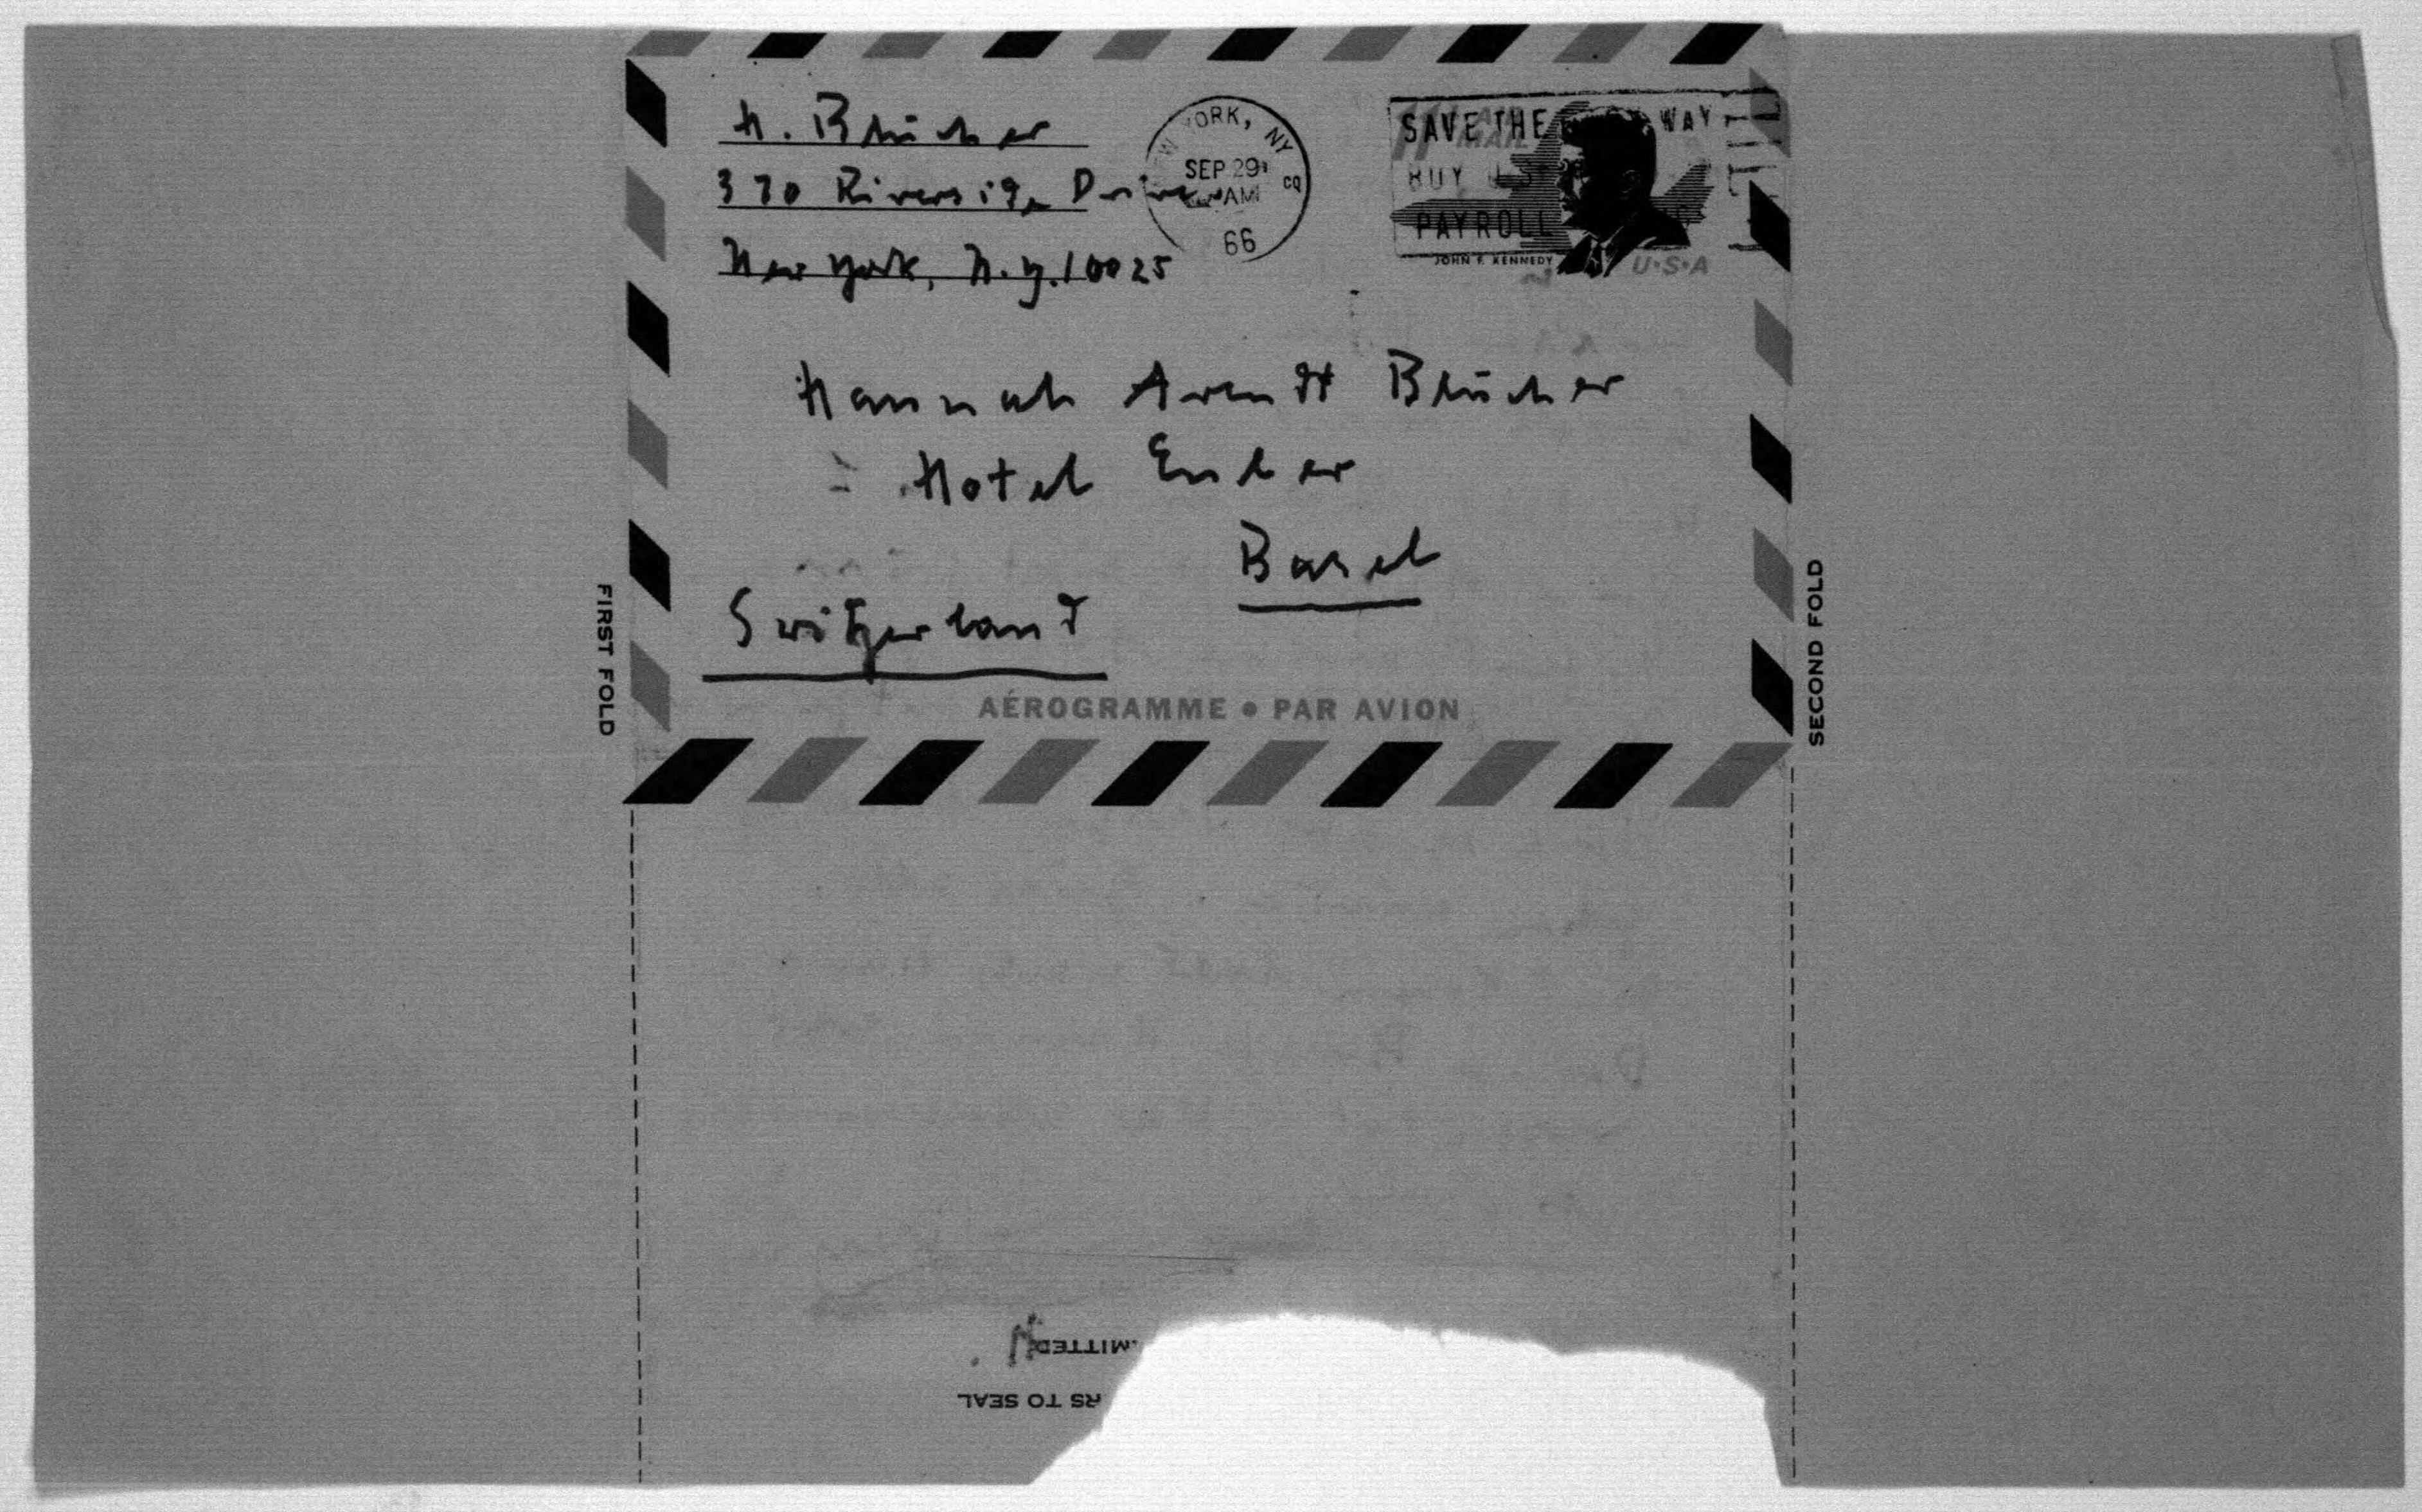 H. Blücher
370 Riverside Drive
New York, N.Y. 10025
NEW YORK, NY
SEP 29
AM
CQ
66
AIR MAIL
SAVE THE WAY
BUY U S
PAYROLL
JOHN F. KENNEDY
U·S·A
Hannah Arendt Blücher
Hotel Euler
Basel
Switzerland
AÉROGRAMME • PAR AVION
FIRST FOLD
SECOND FOLD
MITTED
RS TO SEAL